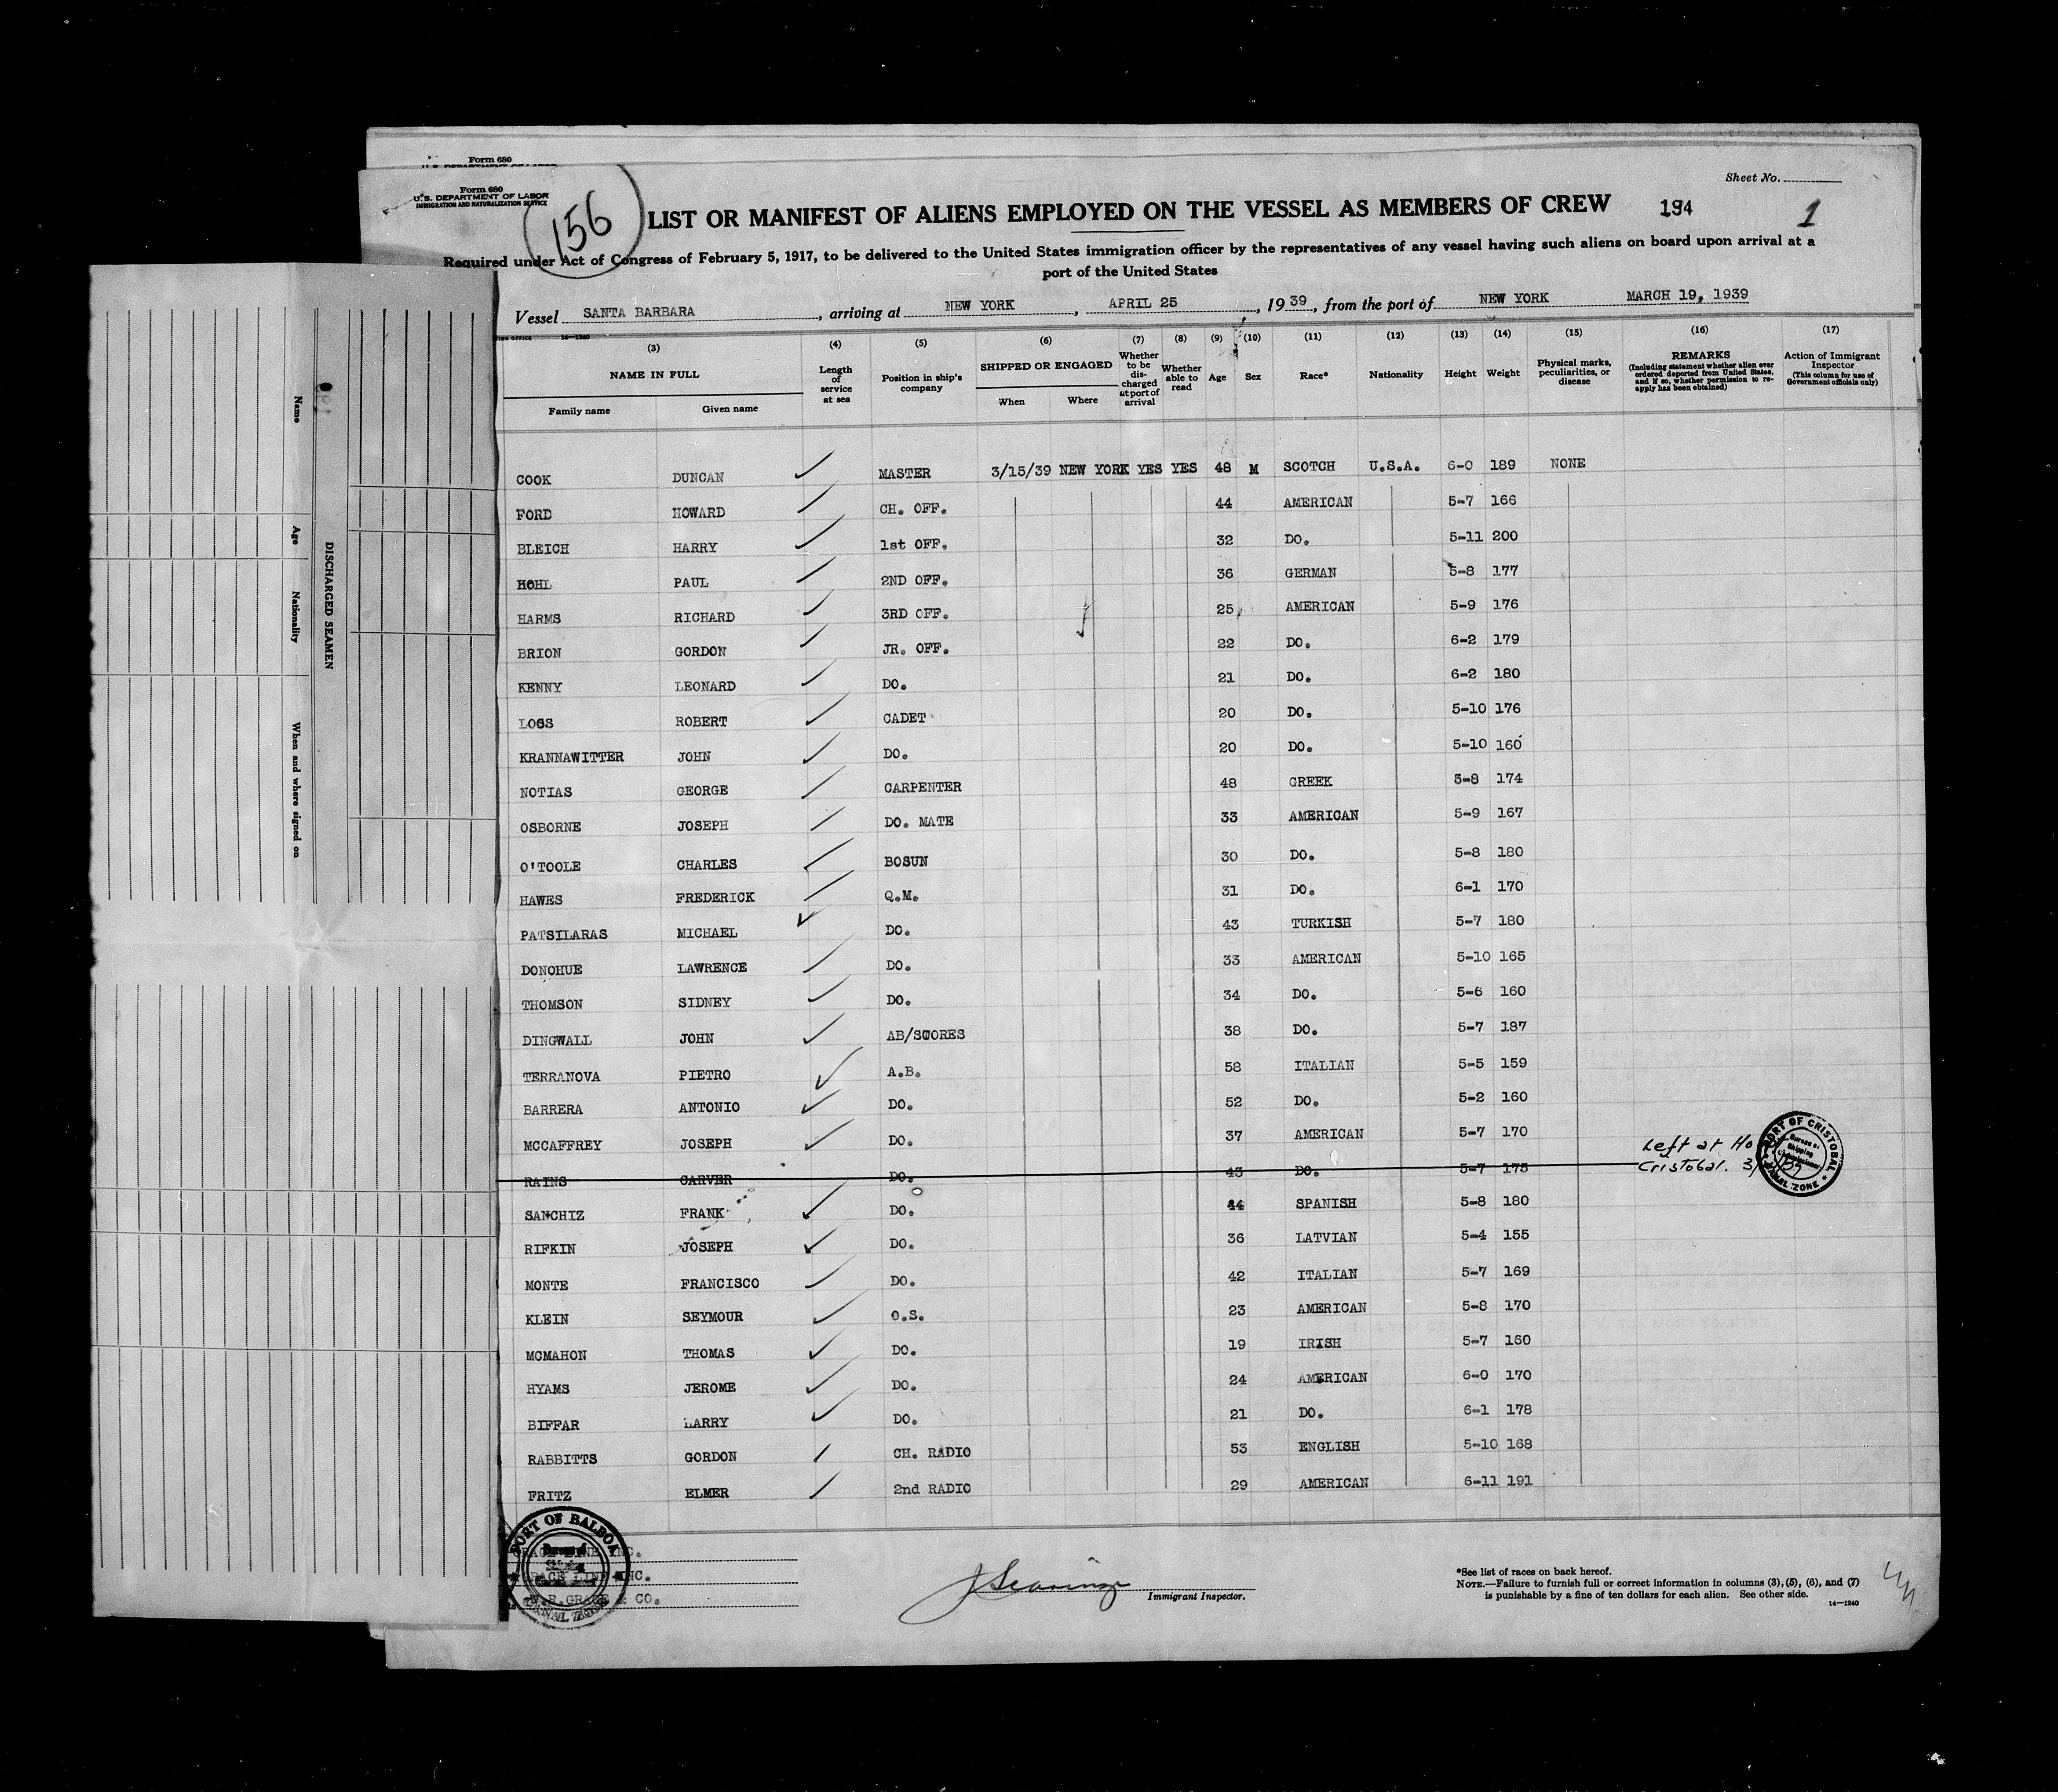 Form 680
Form 680
U.S. DEPARTMENT OF LABOR
IMMIGRATION AND NATURALIZATION SERVICE
156
Sheet No.
LIST OR MANIFEST OF ALIENS EMPLOYED ON THE VESSEL AS MEMBERS OF CREW 194 1
Required under Act of Congress of February 5, 1917, to be delivered to the United States immigration officer by the representatives of any vessel having such aliens on board upon arrival at a
port of the United States
Vessel SANTA BARBARA, arriving at NEW YORK, APRIL 25, 1939, from the port of NEW YORK MARCH 19, 1939
14—1240
(3) (4) (5) (6) (7) (8) (9) (10) (11) (12) (13) (14) (15) (16) (17)
NAME IN FULL
Family name Given name
Length of service at sea
Position in ship's company
SHIPPED OR ENGAGED
When Where
Whether to be discharged at port of arrival
Whether able to read
Age
Sex
Race*
Nationality
Height
Weight
Physical marks, peculiarities, or disease
REMARKS
(Including statement whether alien ever ordered deported from United States, and if so, whether permission to reapply has been obtained)
Action of Immigrant Inspector
(This column for use of Government officials only)
COOK DUNCAN MASTER 3/15/39 NEW YORK YES YES 48 M SCOTCH U.S.A. 6-0 189 NONE
FORD HOWARD CH. OFF. 44 AMERICAN 5-7 166
BLEICH HARRY 1st OFF. 32 DO. 5-11 200
HOHL PAUL 2ND OFF. 36 GERMAN 5-8 177
HARMS RICHARD 3RD OFF. 25 AMERICAN 5-9 176
BRION GORDON JR. OFF. 22 DO. 6-2 179
KENNY LEONARD DO. 21 DO. 6-2 180
ROBERT CADET 20 DO. 5-10 176
KRANNAWITTER JOHN DO. 20 DO. 5-10 160
NOTIAS GEORGE CARPENTER 48 GREEK 5-8 174
OSBORNE JOSEPH DO. MATE 33 AMERICAN 5-9 167
O'TOOLE CHARLES BOSUN 30 DO. 5-8 180
HAWES FREDERICK Q.M. 31 DO. 6-1 170
PATSILARAS MICHAEL DO. 43 TURKISH 5-7 180
DONOHUE LAWRENCE DO. 33 AMERICAN 5-10 165
THOMSON SIDNEY DO. 34 DO. 5-6 160
DINGWALL JOHN AB/STORES 38 DO. 5-7 187
TERRANOVA PIETRO A.B. 58 ITALIAN 5-5 159
BARRERA ANTONIO DO. 52 DO. 5-2 160
MCCAFFREY JOSEPH DO. 37 AMERICAN 5-7 170
RAINS CARVER DO. 43 DO. 5-7 175 Left at Cristobal.
SANCHIZ FRANK DO. 44 SPANISH 5-8 180
RIFKIN JOSEPH DO. 36 LATVIAN 5-4 155
MONTE FRANCISCO DO. 42 ITALIAN 5-7 169
KLEIN SEYMOUR O.S. 23 AMERICAN 5-8 170
MCMAHON THOMAS DO. 19 IRISH 5-7 160
HYAMS JEROME DO. 24 AMERICAN 6-0 170
BIFFAR LARRY DO. 21 DO. 6-1 178
RABBITTS GORDON CH. RADIO 53 ENGLISH 5-10 168
FRITZ ELMER 2nd RADIO 29 AMERICAN 6-11 191
PORT OF CRISTOBAL
Bureau of
Shipping
Commissioner
CANAL ZONE
PORT OF BALBOA
Bureau of
CANAL ZONE
GRACE LINE INC.
GRACE LINE INC.
W.R. GRACE & CO.
Immigrant Inspector.
*See list of races on back hereof.
NOTE.—Failure to furnish full or correct information in columns (3), (5), (6), and (7)
is punishable by a fine of ten dollars for each alien. See other side.
14—1240
DISCHARGED SEAMEN
Name Age Nationality When and where signed on